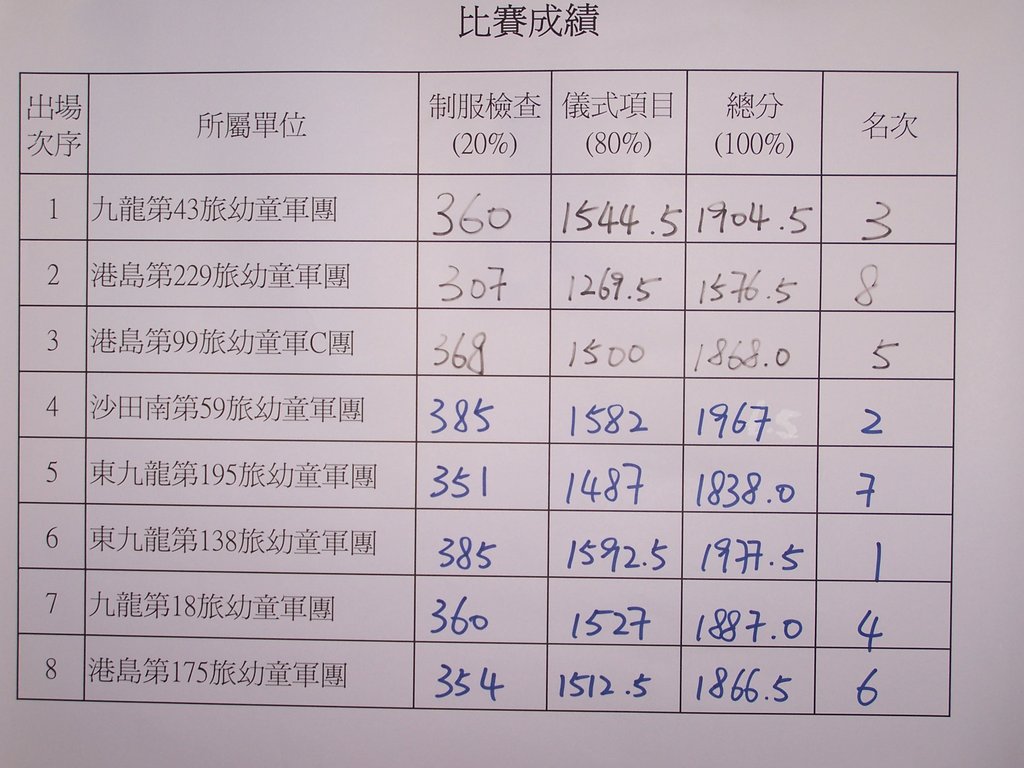 比賽成績
出場次序 所屬單位 制服檢查 (20%) 儀式項目 (80%) 總分 (100%) 名次
1 九龍第43旅幼童軍團 360 1544.5 1904.5 3
2 港島第229旅幼童軍團 307 1269.5 1576.5 8
3 港島第99旅幼童軍C團 368 1500 1868.0 5
4 沙田南第59旅幼童軍團 385 1582 1967 2
5 東九龍第195旅幼童軍團 351 1487 1838.0 7
6 東九龍第138旅幼童軍團 385 1592.5 1977.5 1
7 九龍第18旅幼童軍團 360 1527 1887.0 4
8 港島第175旅幼童軍團 354 1512.5 1866.5 6